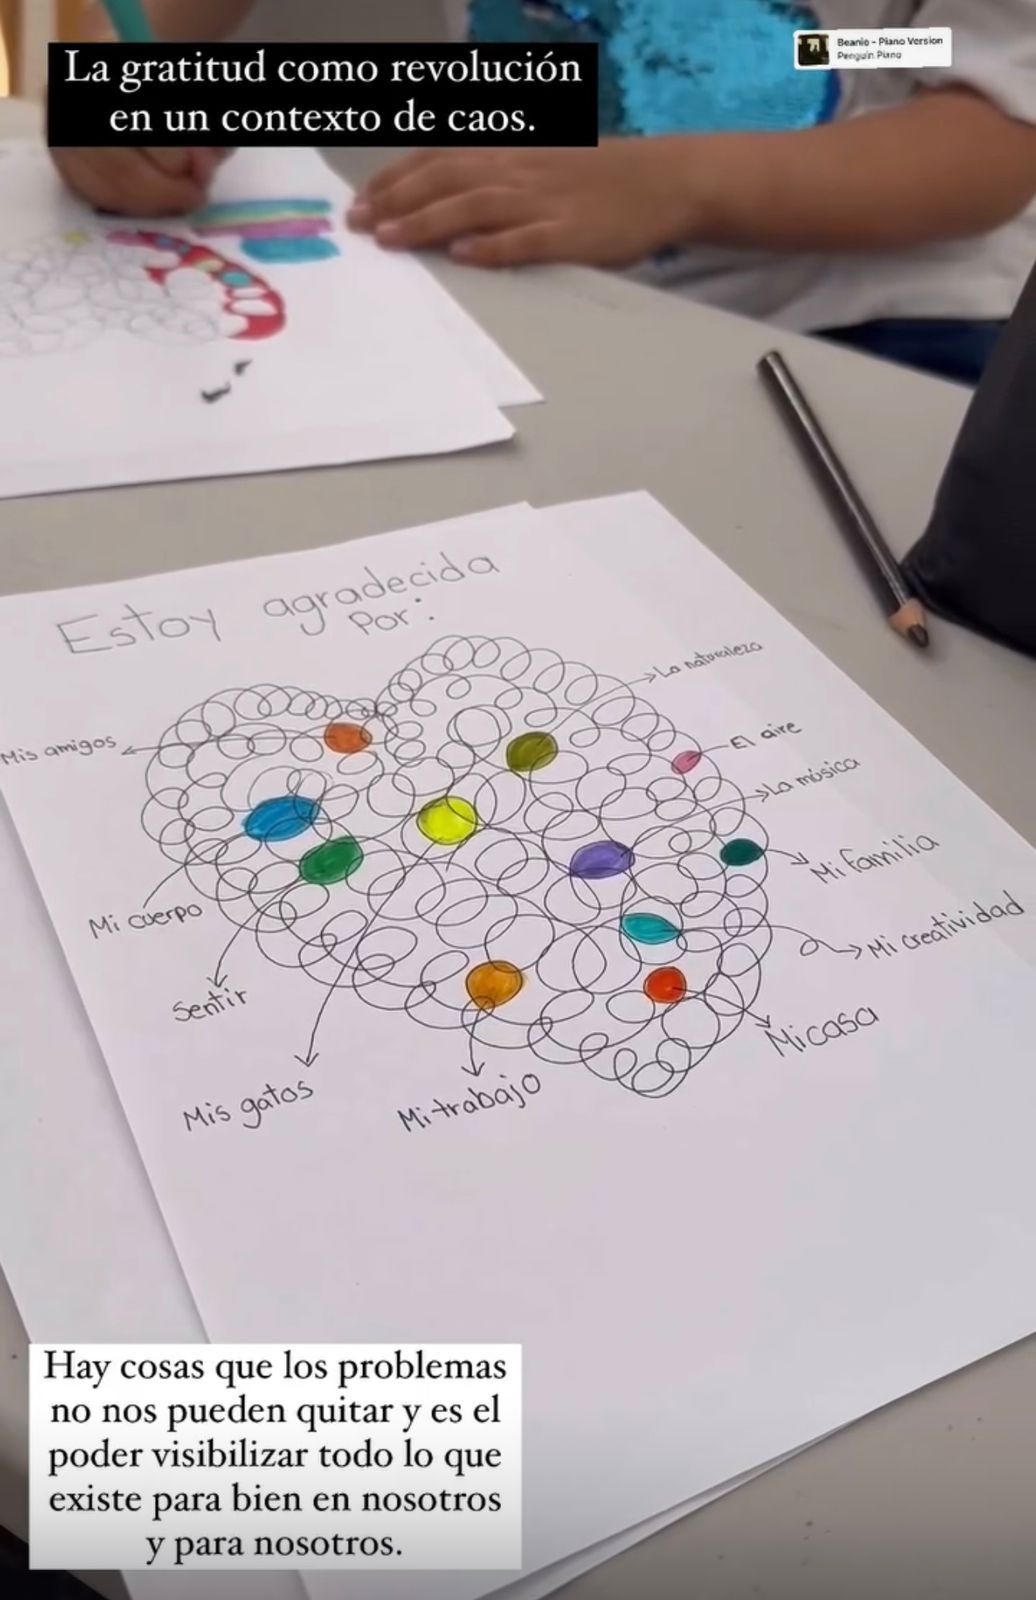 La gratitud como revolución
en un contexto de caos.
Beanie - Piano Version
Penguin Piano
Estoy agradecida
por:
La naturaleza
Mis amigos
El aire
La música
Mi familia
Mi cuerpo
Mi creatividad
Sentir
Mi casa
Mis gatos
Mi trabajo
Hay cosas que los problemas
no nos pueden quitar y es el
poder visibilizar todo lo que
existe para bien en nosotros
y para nosotros.